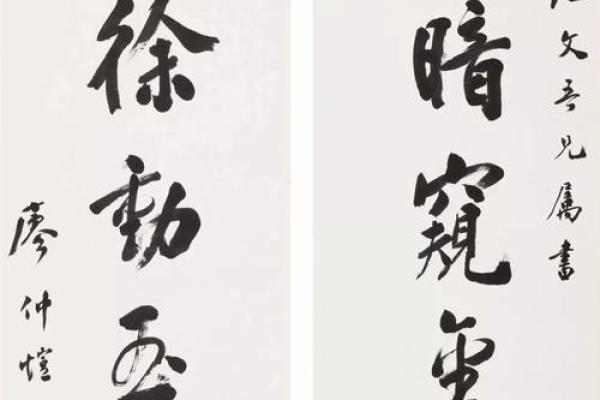 文吾兄屬書
暗窺金
徐動玉
廖仲愷